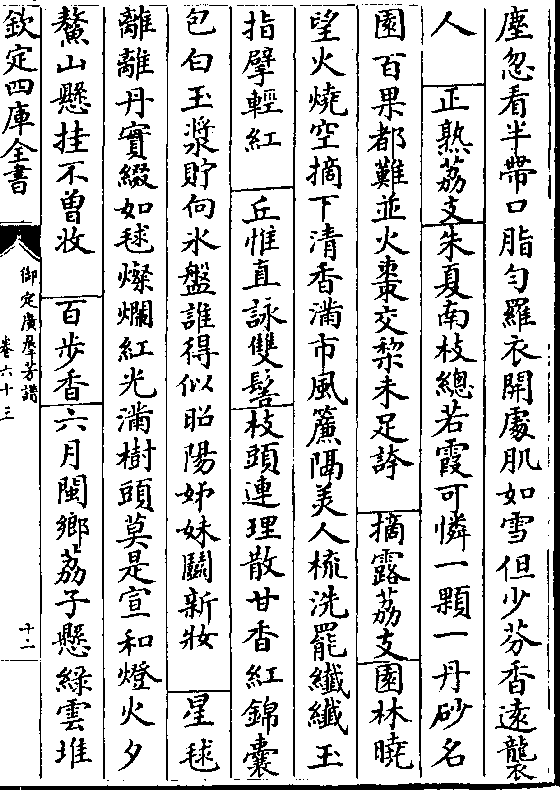 塵忽看半帶口脂勻羅衣開處肌如雪但少芬香遠襲
人　正熟荔支朱夏南枝總若霞可憐一顆一丹砂名
園百果都難並火棗交棃未足誇　摘露荔支園林曉
望火燒空摘下清香滿市風簾隔美人梳洗罷纖纖玉
指擘輕紅　丘惟直詠雙髻枝頭連理散甘香紅錦囊
包白玉漿貯向氷盤誰得似昭陽姊妹鬭新妝　星毬
離離丹實綴如毬燦爛紅光滿樹頭莫是宣和燈火夕
鰲山懸挂不曽收　百步香六月閩鄉荔子懸緑雲堆
欽定四庫全書
御定廣羣芳譜
卷六十三
十二